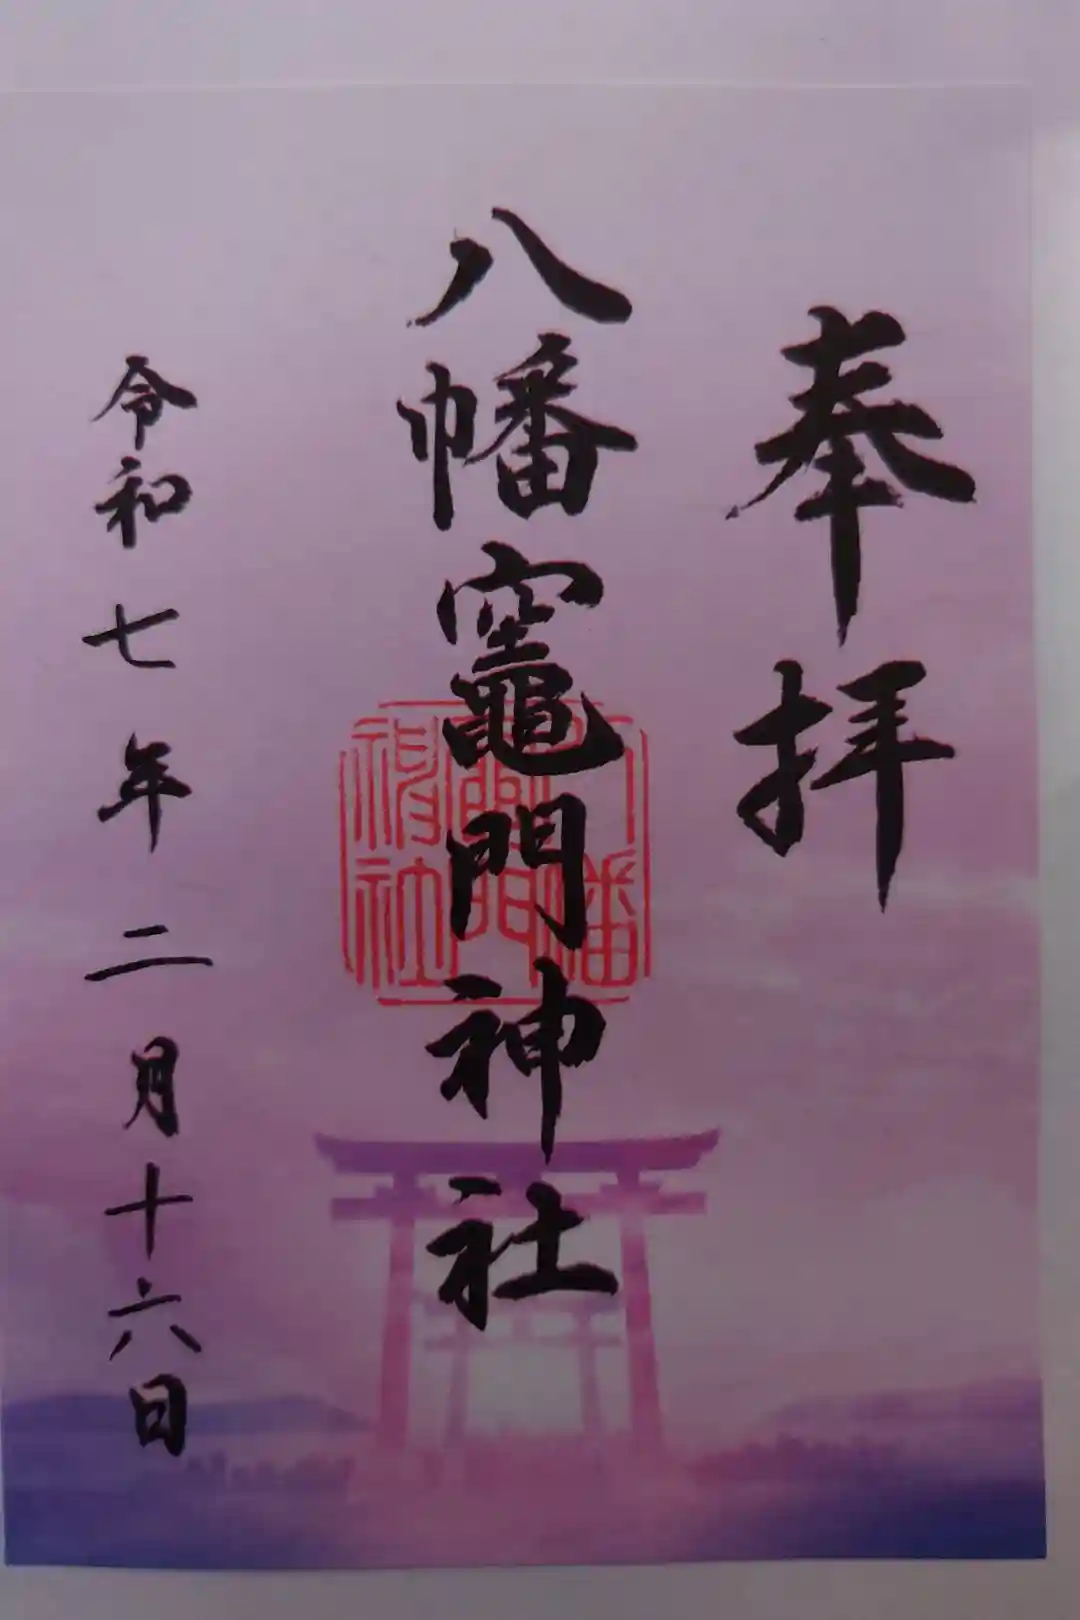 奉拝
八幡竈門神社
八幡
竈門
神社
令和七年二月十六日